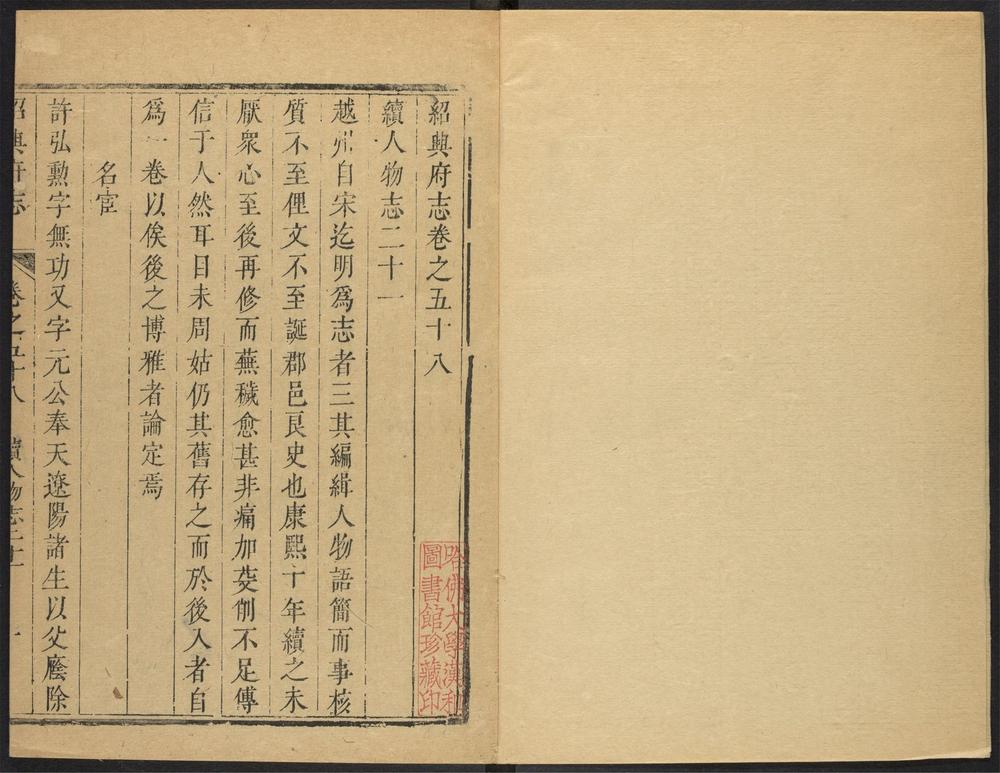 紹興府志卷之五十八
續人物志二十一
越州自宋迄明爲志者三其編緝人物語簡而事核
質不至俚文不至誕郡邑良史也康熙十年續之未
厭衆心至後再修而蕪穢愈甚非痛加芟削不足傳
信于人然耳目未周姑仍其舊存之而於後入者自
爲一卷以俟後之博雅者論定焉
名宦
許弘勲字無功又字元公奉天遼陽諸生以父廕除
紹興府志
卷之五十八
續人物志二十一
一
哈佛大學漢和
圖書館珍藏印